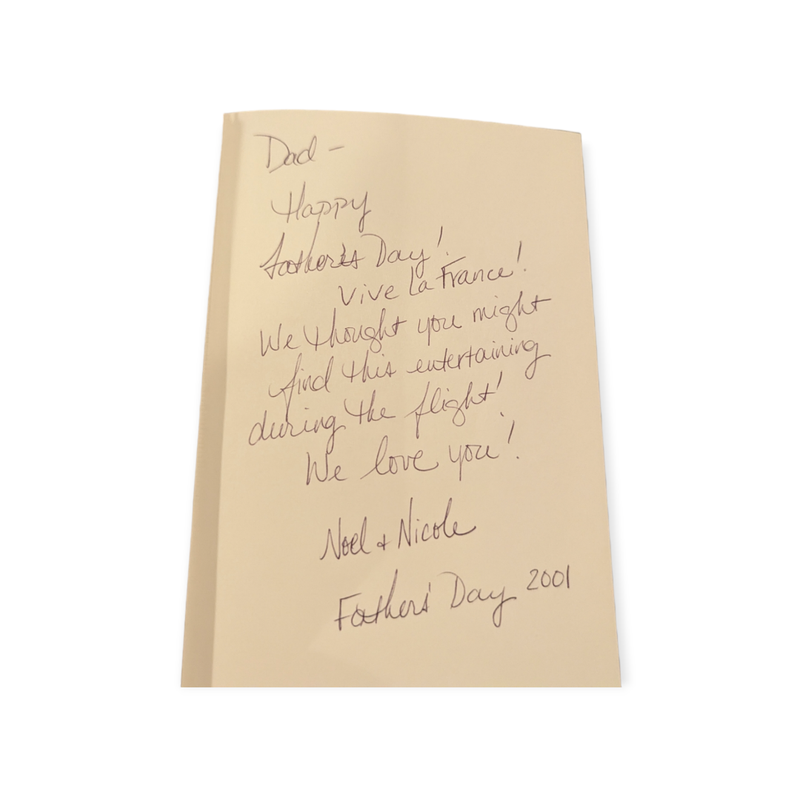 Dad -
Happy
Father's Day!
Vive La France!
We thought you might
find this entertaining
during the flight!
We love you!
Noel + Nicole
Fathers' Day 2001